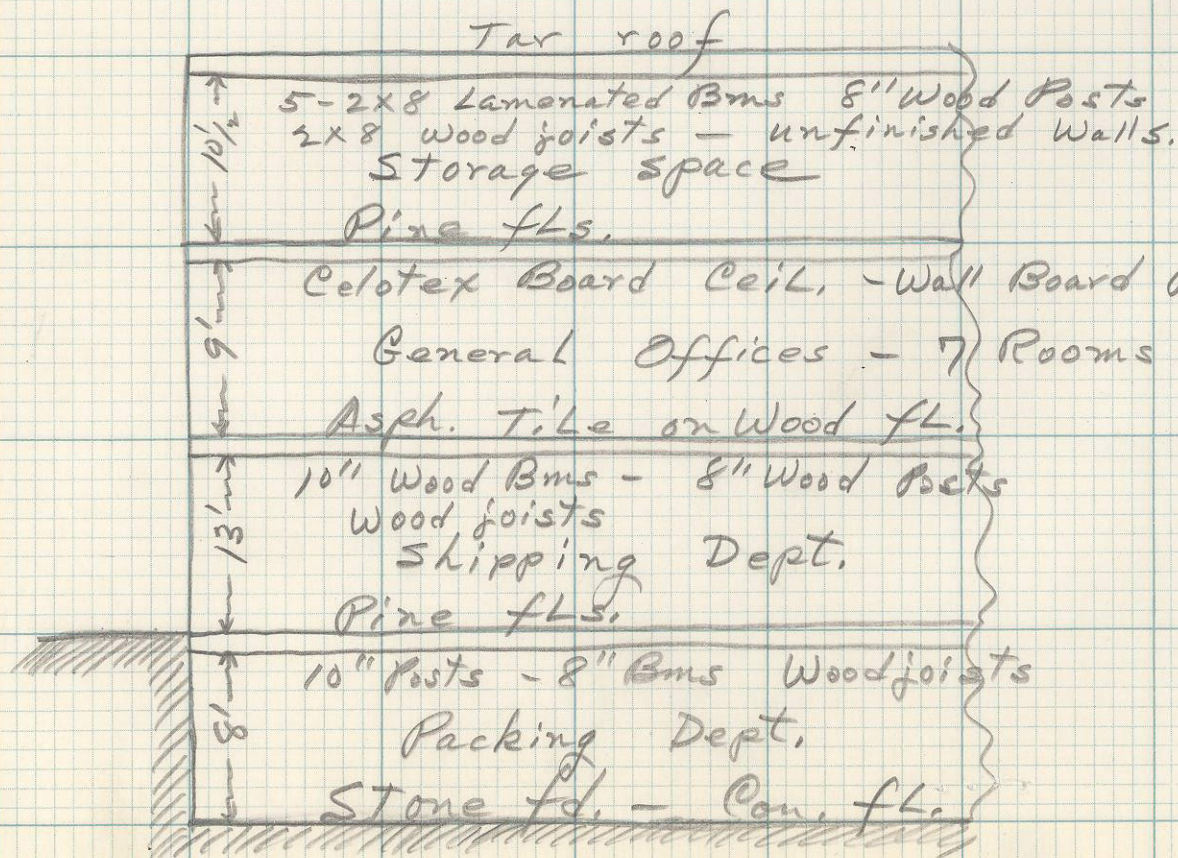 Tar roof
5-2x8 Lamenated Bms 8" Wood Posts
2x8 wood joists - unfinished Walls.
10½'
Storage space
Pine fLs.
Celotex Board Ceil. - Wall Board
9'
General Offices - 7 Rooms
Asph. Tile on Wood fL.
10" Wood Bms - 8" Wood Posts
Wood joists
13'
Shipping Dept.
Pine fLs.
10" Posts - 8" Bms Wood joists
8'
Packing Dept.
Stone fd. - Con. fL.